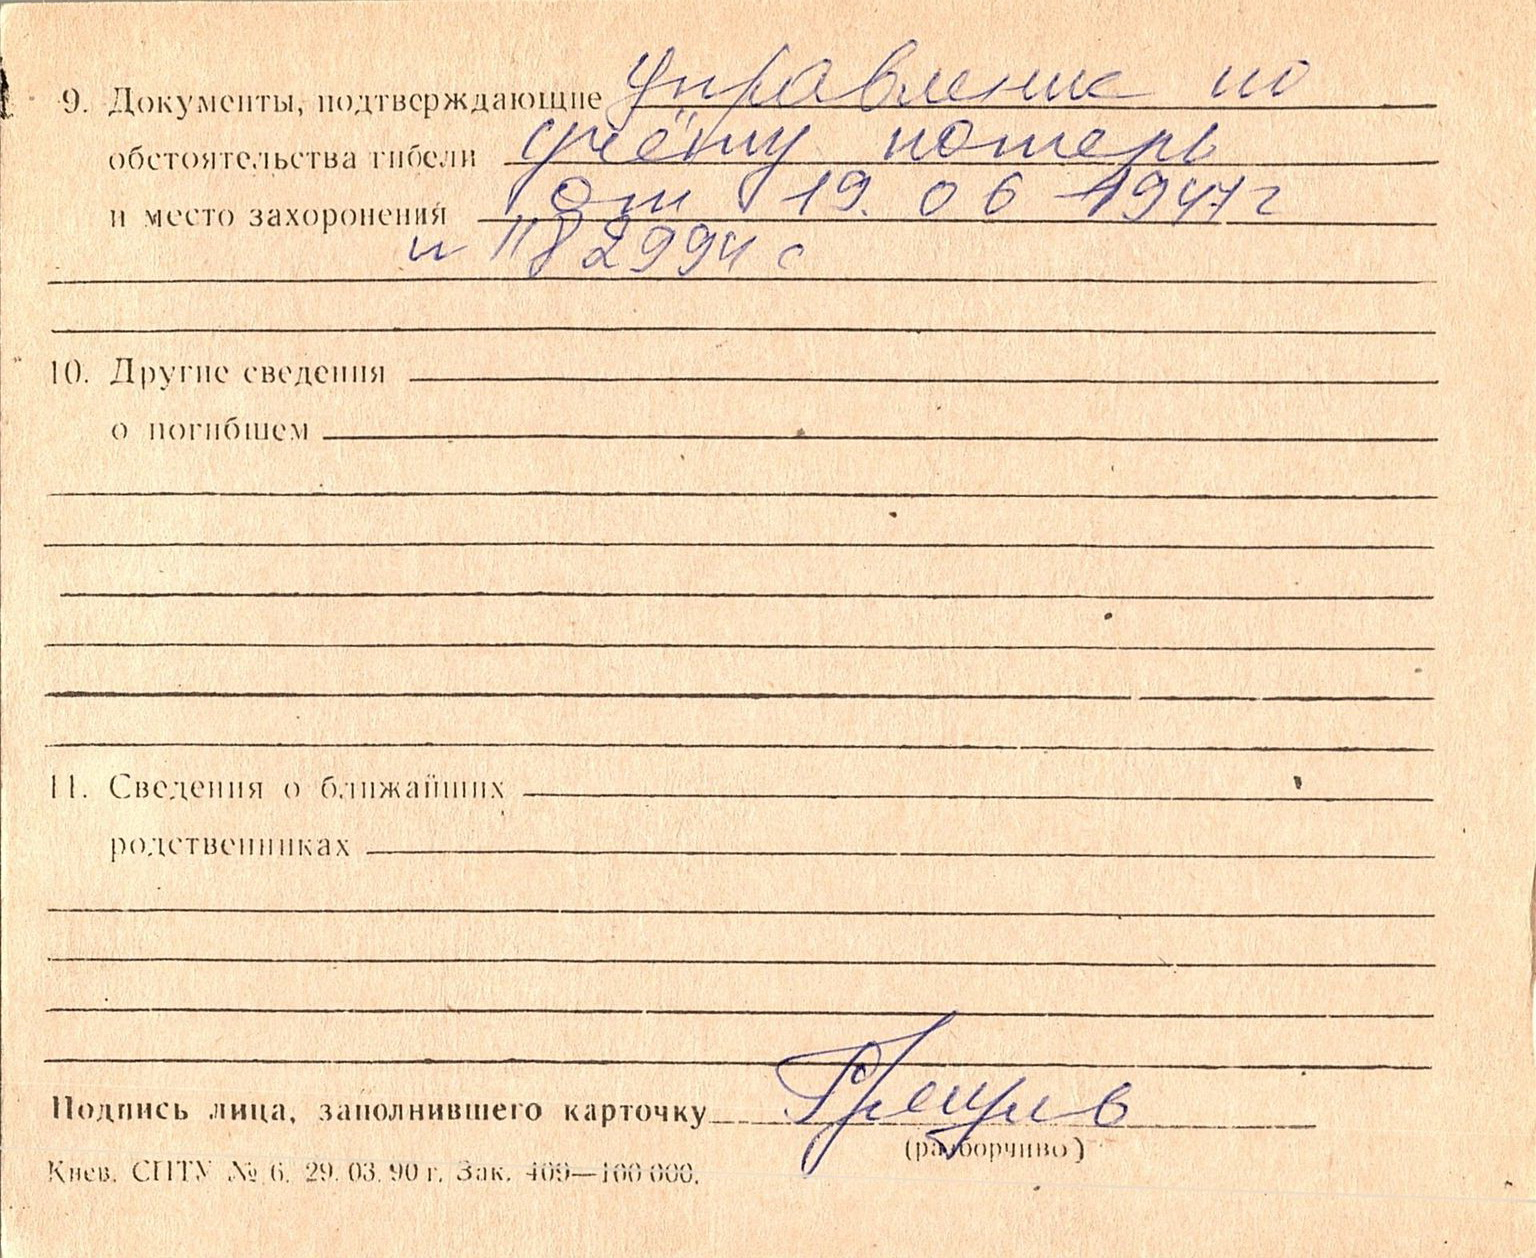 9. Документы, подтверждающие Управление по
обстоятельства гибели учёту потерь
и место захоронения от 19. 06 1947 г
и 82994 с
10. Другие сведения
о погибшем
11. Сведения о ближайших
родственниках
Подпись лица, заполнившего карточку
(разборчиво)
Киев. СПТУ № 6. 29. 03. 90 г. Зак. 409—100 000.